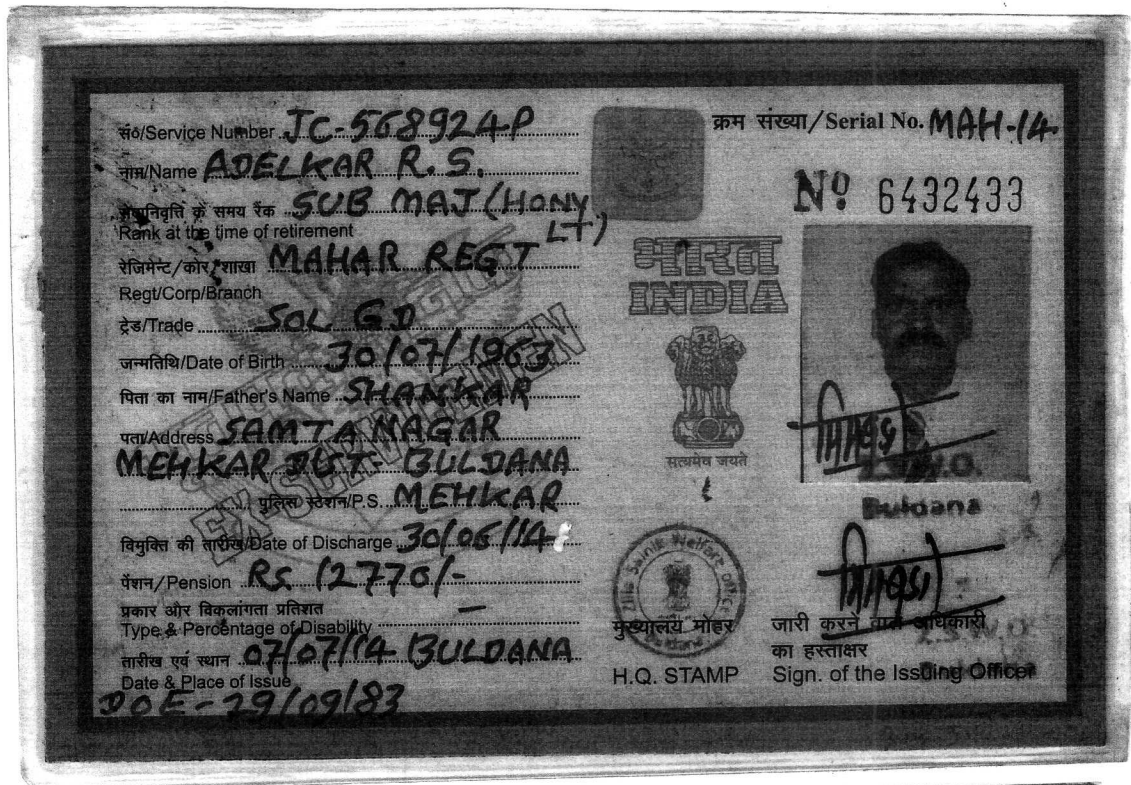 सं०/Service Number JC-568924P
नाम/Name ADELKAR R. S.
सेवानिवृत्ति के समय रैंक SUB MAJ (HONY LT)
Rank at the time of retirement
रेजिमेन्ट/कोर/शाखा MAHAR REGT
Regt/Corp/Branch
ट्रेड/Trade SOL GD
जन्मतिथि/Date of Birth 30/07/1963
पिता का नाम/Father's Name SHANKAR
पता/Address SAMTA NAGAR
MEHKAR DIST- BULDANA
पुलिस स्टेशन/P.S. MEHKAR
विमुक्ति की तारीख/Date of Discharge 30/06/14
पेंशन/Pension Rs. 12770/-
प्रकार और विकलांगता प्रतिशत —
Type & Percentage of Disability
तारीख एवं स्थान 07/07/14 BULDANA
Date & Place of Issue
DOE - 29/09/83
EX-SERVICEMEN
क्रम संख्या/Serial No. MAH-14
Nº 6432433
भारत
INDIA
सत्यमेव जयते
Zilla Sainik Welfare Office
मुख्यालय मोहर
H.Q. STAMP
Z.S.W.O.
Buldana
Z.S.W.O.
जारी करने वाले अधिकारी
का हस्ताक्षर
Sign. of the Issuing Officer